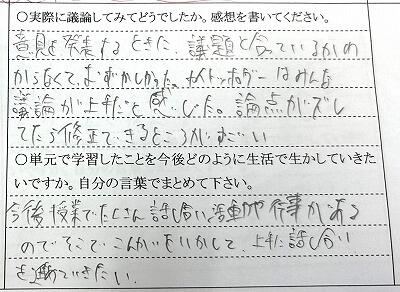 ○実際に議論してみてどうでしたか。感想を書いてください。
意見を発表するときに、議題と合っているかわ
からなくて、むずかしかった。ナイトンホルダーはみんな
議論が上手だと感じした。論点がズレ
てたら修正できるところがすごい
○単元で学習したことを今後どのように生活で生かしていきた
いですか。自分の言葉でまとめて下さい。
今後授業でたくさん話し合い活動や行事がある
のでそこでこんかいをいかして、上手に話し合い
を進めていきたい。